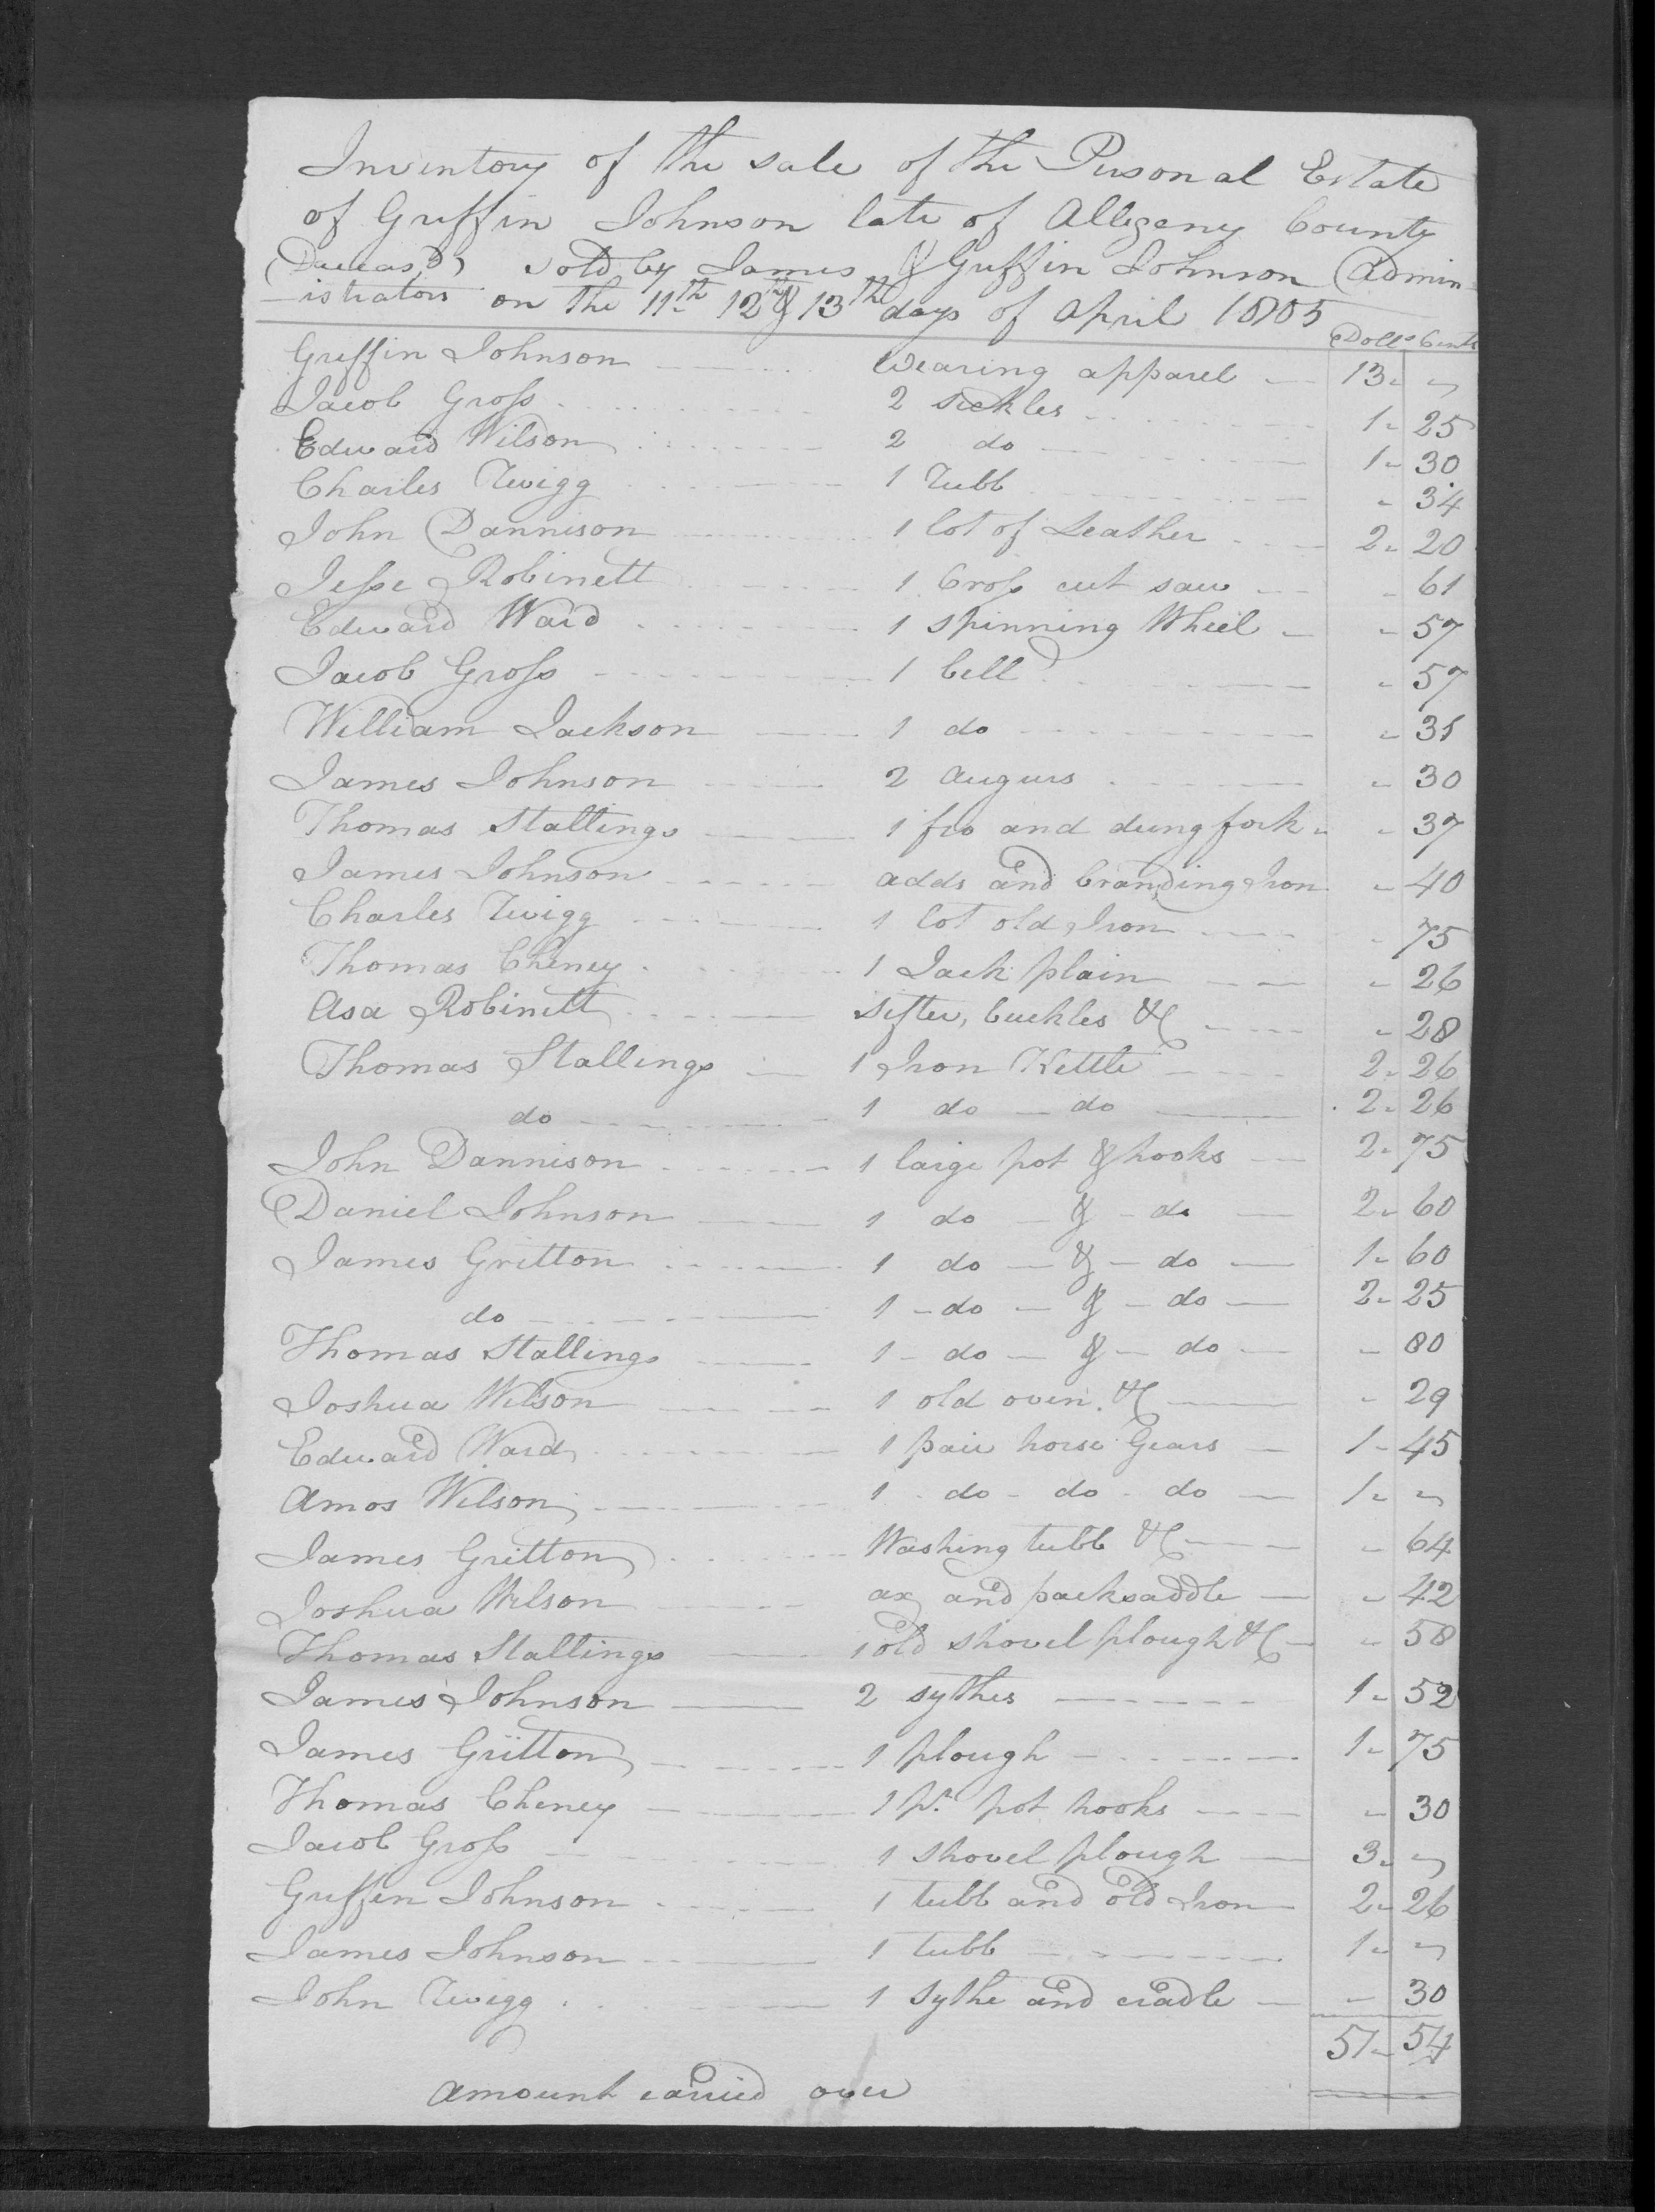 Inventory of the sale of the Personal Estate
of Griffin Johnson late of Allegeny County
(Deceas'd) sold by James & Griffin Johnson Admin-
-istrators on the 11th 12th & 13th days of April 1805
Dolls Cents
Griffin Johnson Wearing apparel 13 "
Jacob Gross 2 sickles 1 " 25
Edward Wilson 2 do 1 " 30
Charles Twigg 1 Tubb " 34
John Dannison 1 lot of Leather 2 " 20
Jesse Robinett 1 Cross cut saw " 61
Edward Ward 1 spinning Wheel " 57
Jacob Gross 1 bell " 57
William Jackson 1 do " 31
James Johnson 2 augurs " 30
Thomas Stallings 1 fro and dung fork " 37
James Johnson adds and branding Iron " 40
Charles Twigg 1 lot old Iron " 75
Thomas Cheney 1 Jack plain " 26
Asa Robinett sifter, buckles &C " 28
Thomas Stallings 1 Iron Kettle 2 " 26
do 1 do do 2 " 26
John Dannison 1 large pot & hooks 2 " 75
Daniel Johnson 1 do & do 2 " 60
James Gritton 1 do & do 1 " 60
do 1 do & do 2 " 25
Thomas Stallings 1 do & do " 80
Joshua Wilson 1 old oven &C " 29
Edward Ward 1 pair horse Gears 1 " 45
Amos Wilson 1 do do do 1 " "
James Gritton Washing tubb &C " 64
Joshua Wilson ax and packsaddle " 42
Thomas Stallings 1 old shovel plough &C " 58
James Johnson 2 sythes 1 " 52
James Gritton 1 plough 1 " 75
Thomas Cheney 1 pr. pot hooks " 30
Jacob Gross 1 shovel plough 3 " "
Griffin Johnson 1 tubb and old Iron 2 " 26
James Johnson 1 tubb 1 " "
John Twigg 1 sythe and cradle " 30
51 " 54
Amount carried over